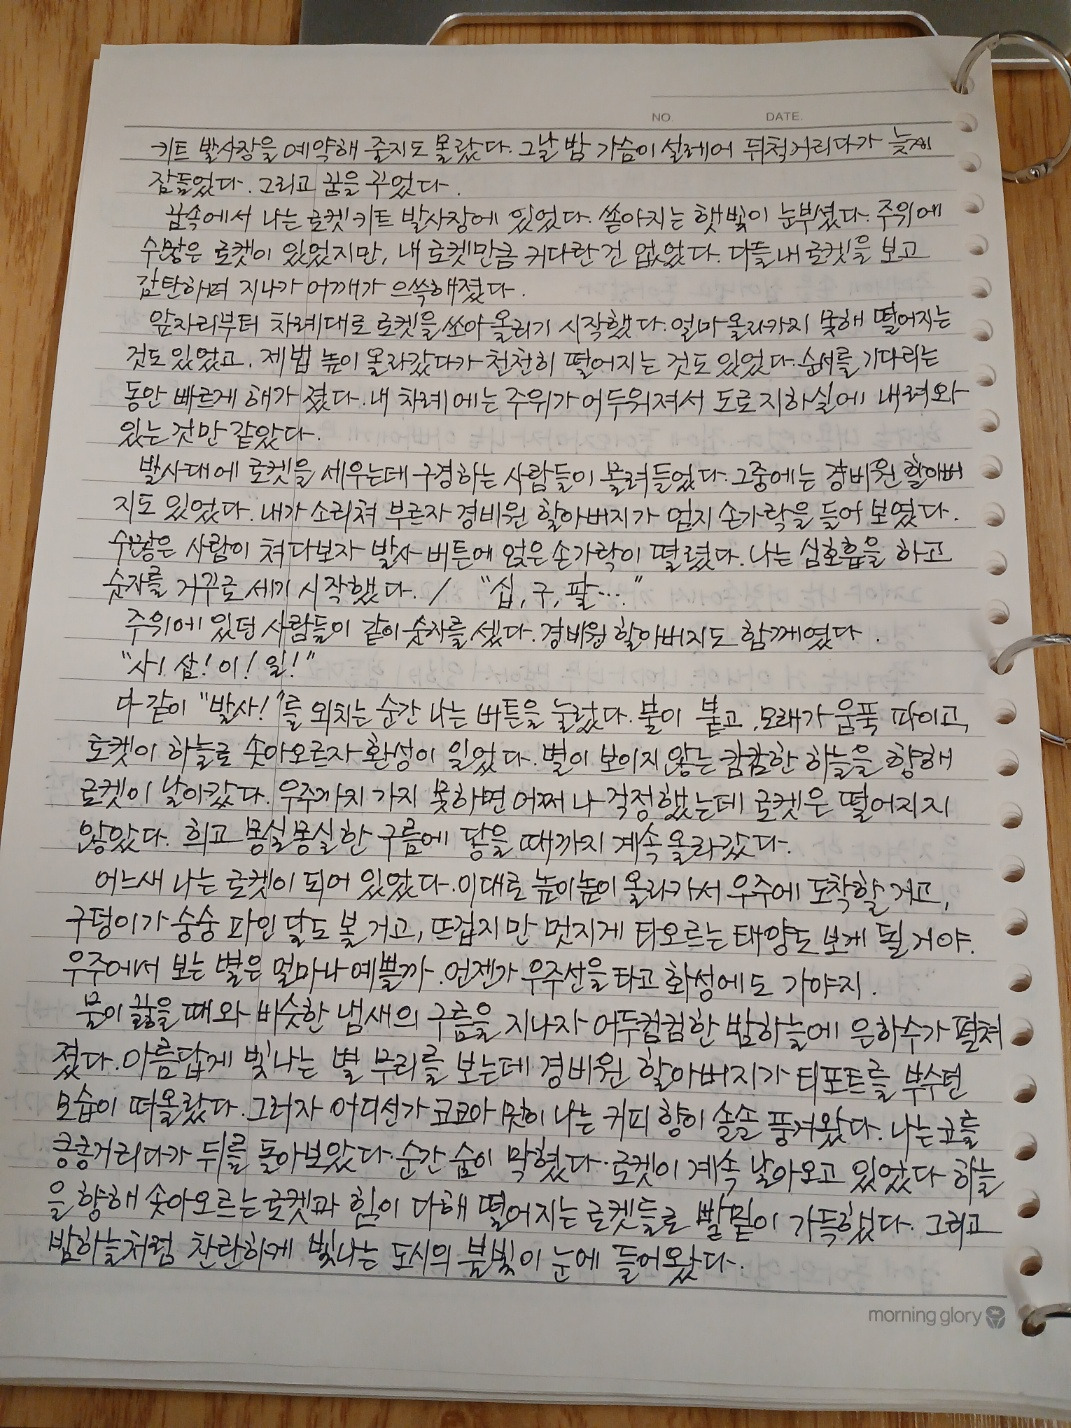 NO. DATE.
키트 발사장을 예약해 줄지도 몰랐다. 그날 밤 가슴이 설레어 뒤척거리다가 늦게
잠들었다. 그리고 꿈을 꾸었다.
꿈속에서 나는 로켓 키트 발사장에 있었다. 쏟아지는 햇빛이 눈부셨다. 주위에
수많은 로켓이 있었지만, 내 로켓만큼 커다란 건 없었다. 다들 내 로켓을 보고
감탄하며 지나가 어깨가 으쓱해졌다.
앞자리부터 차례대로 로켓을 쏘아 올리기 시작했다. 얼마 올라가지 못해 떨어지는
것도 있었고, 제법 높이 올라갔다가 천천히 떨어지는 것도 있었다. 순서를 기다리는
동안 빠르게 해가 졌다. 내 차례에는 주위가 어두워져서 도로 지하실에 내려와
있는 것만 같았다.
발사대에 로켓을 세우는데 구경하는 사람들이 몰려들었다. 그중에는 경비원 할아버
지도 있었다. 내가 소리쳐 부르자 경비원 할아버지가 엄지 손가락을 들어 보였다.
수많은 사람이 쳐다보자 발사 버튼에 얹은 손가락이 떨렸다. 나는 심호흡을 하고
숫자를 거꾸로 세기 시작했다. / "십, 구, 팔…."
주위에 있던 사람들이 같이 숫자를 셌다. 경비원 할아버지도 함께였다.
"사! 삼! 이! 일!"
다 같이 "발사!"를 외치는 순간 나는 버튼을 눌렀다. 불이 붙고, 모래가 움푹 파이고,
로켓이 하늘로 솟아오르자 환성이 일었다. 별이 보이지 않는 캄캄한 하늘을 향해
로켓이 날아갔다. 우주까지 가지 못하면 어쩌나 걱정했는데 로켓은 떨어지지
않았다. 희고 몽실몽실한 구름에 닿을 때까지 계속 올라갔다.
어느새 나는 로켓이 되어 있었다. 이대로 높이높이 올라가서 우주에 도착할 거고,
구덩이가 숭숭 파인 달도 볼 거고, 뜨겁지만 멋지게 타오르는 태양도 보게 될 거야.
우주에서 보는 별은 얼마나 예쁠까. 언젠가 우주선을 타고 화성에도 가야지.
물이 끓을 때와 비슷한 냄새의 구름을 지나자 어두컴컴한 밤하늘에 은하수가 펼쳐
졌다. 아름답게 빛나는 별 무리를 보는데 경비원 할아버지가 티포트를 부수던
모습이 떠올랐다. 그러자 어디선가 코코아 맛이 나는 커피 향이 솔솔 풍겨왔다. 나는 코를
킁킁거리다가 뒤를 돌아보았다. 순간 숨이 막혔다. 로켓이 계속 날아오고 있었다. 하늘
을 향해 솟아오르는 로켓과 힘이 다해 떨어지는 로켓들로 발밑이 가득했다. 그리고
밤하늘처럼 찬란하게 빛나는 도시의 불빛이 눈에 들어왔다.
morning glory